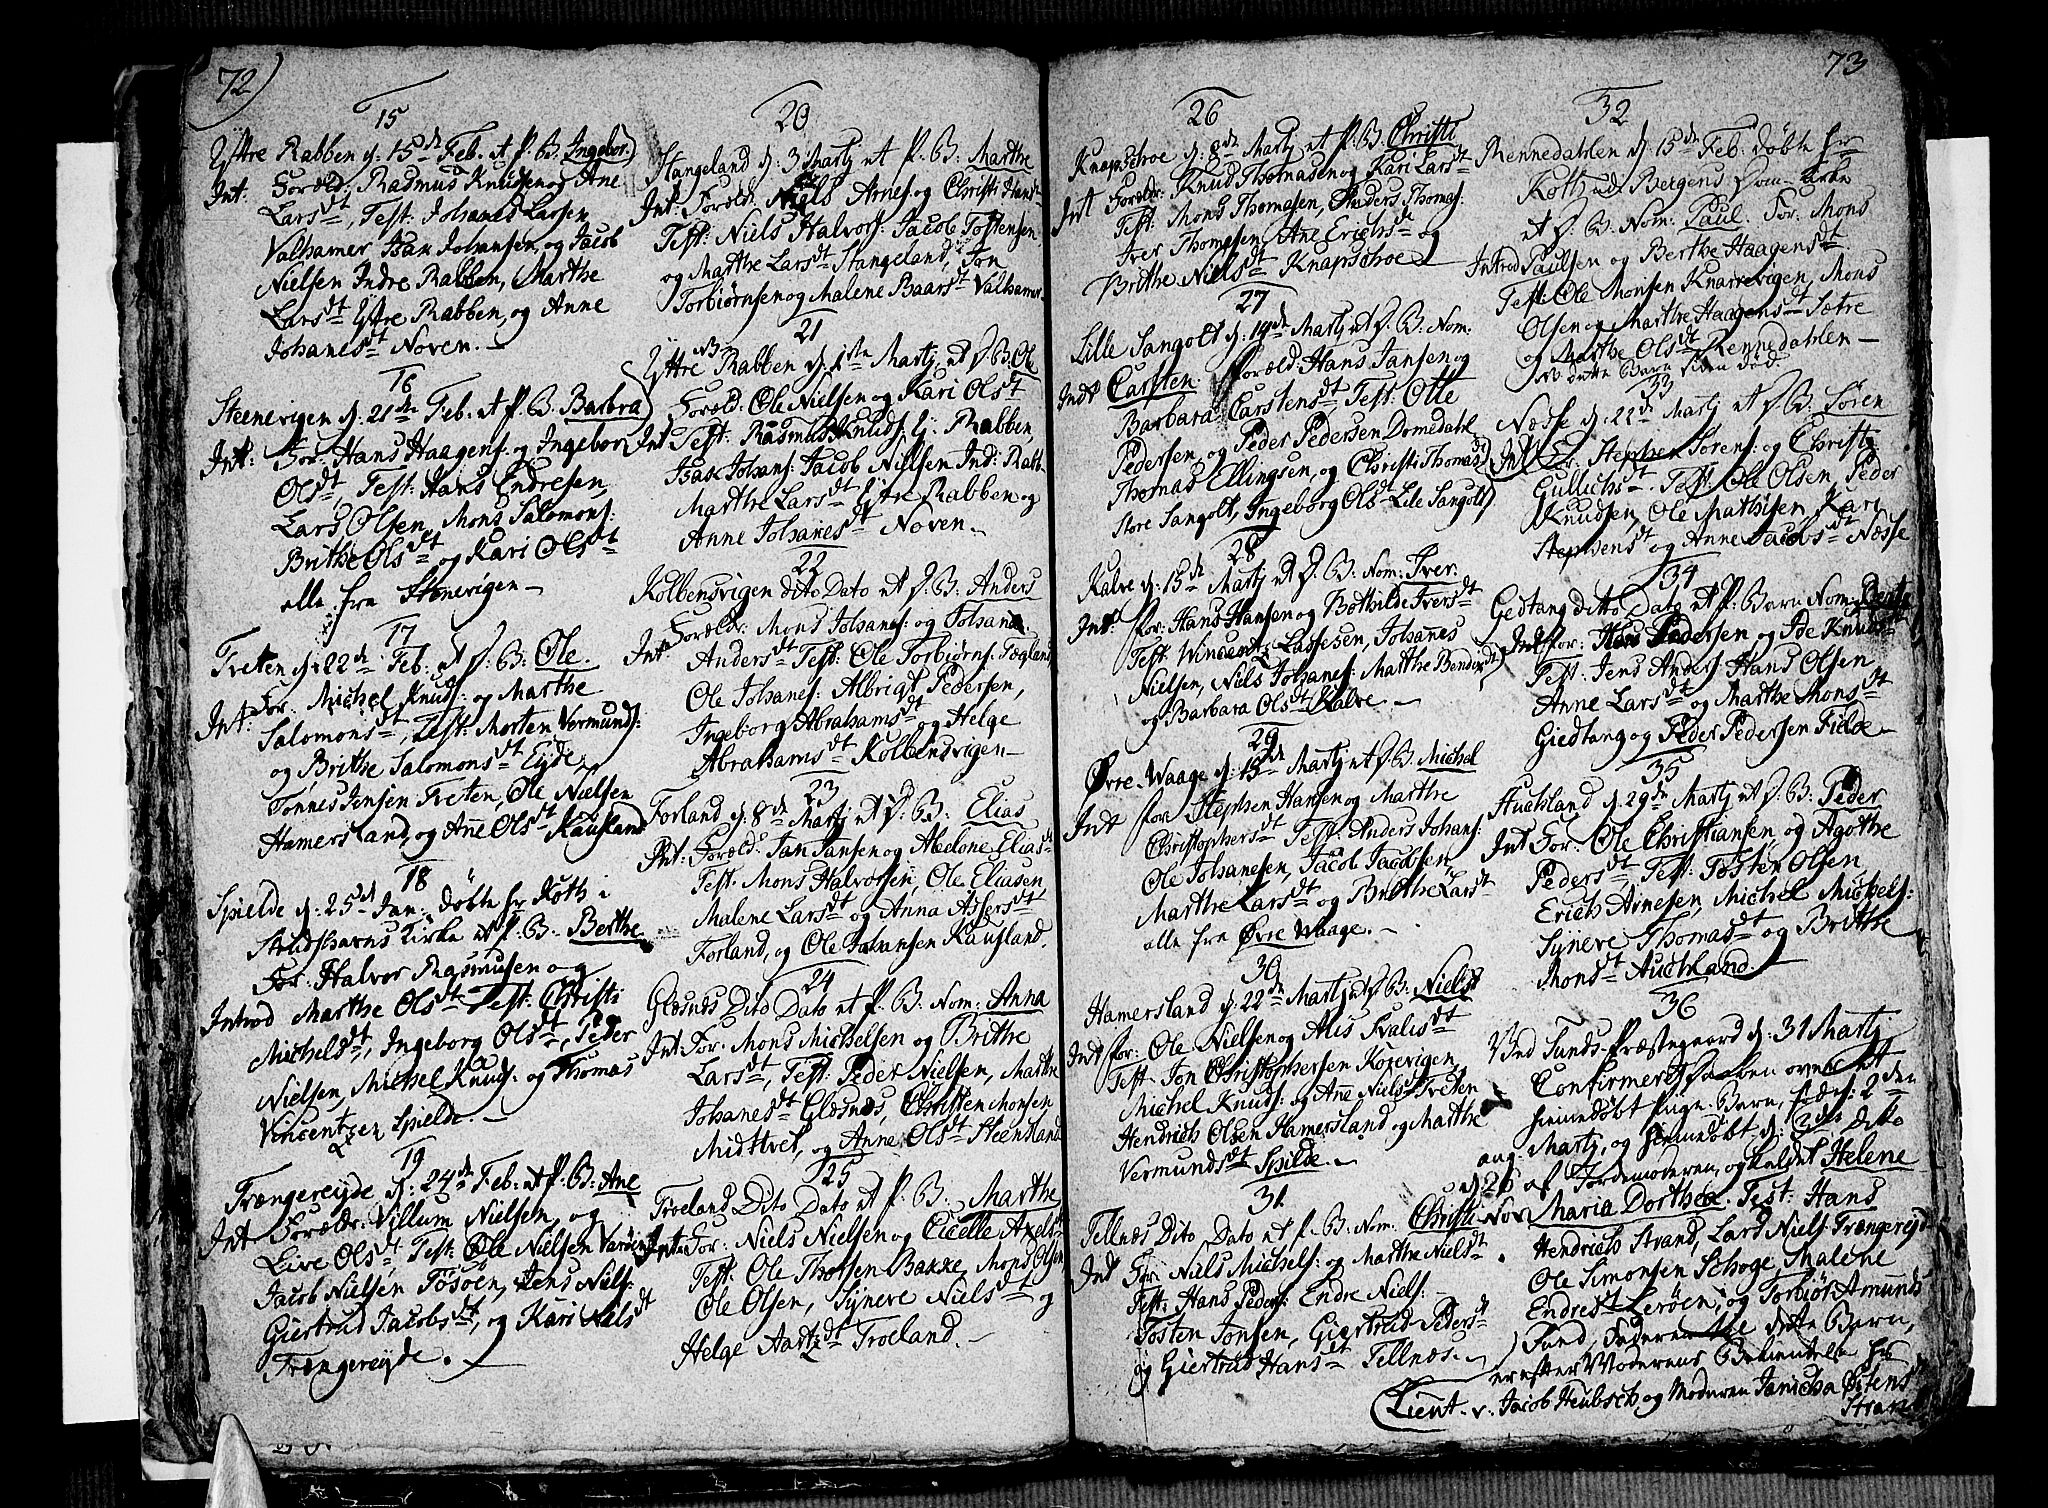 72)
15
Yttre Rabben d: 15de Feb. et P. B. Ingebor)
Int: Foræld: Rasmus Knudsen og Ane
Larsdt, Test: Johanes Larsen
Valhamer Isak Johansen, og Jacob
Nielsen Indre Rabben, Marthe
Larsdt Yttre Rabben, og Anne
Johanesdt Noven. —
16
Steenevigen d: 21de Feb. et P. B. Barbra)
Int: For: Hans Haagens: og Ingebor
Olsdt, Test: Hans Endresen,
Lars Olsen, Mons Salomons:
Brithe Olsdt og Kari Olsdt
alle fra Stenevigen —
17
Treten d: 22de Feb: et P: B: Ole.
Int: For: Michel Knuds: og Marthe
Salomonsdt, Test: Morten Vermunds:
og Brithe Salomonsdt Eyde,
Tønnes Jensen Treten, Ole Nielsen
Hamersland, og Ane Olsdt Kausland
18
Spielde d: 25de Jan: døbte hr Koth i
Sundshavns Kirke et P: B: Berthe
For: Halvor Rasmusen og
Introd Marthe Olsdt Test: Christi
Michelsdt, Ingeborg Olsdt, Peder
Nielsen, Michel Knuds: og Thomas
Vincentzen Spielde. —
19
Trængereyde d: 24de Feb: et P: B: Ane
Int Forældr: Villum Nielsen, og
Live Olsdt, Test: Ole Nielsen
Jacob Nielsen Tosøen, Jens Niels:
Giertrud Jacobsdt, og Kari Nilsdt
Trængereyde. —
20
Stangeland d: 3 Martj et P. B: Marthe
Int: Foræld: Niels Arnes: og Christi Hansdt
Test: Niels Halvors: Jacob Tostensen
og Marthe Larsdt Stangeland, Jon
Torbiørnsen og Malene Baarsdt Valhamer.
21
NB
Yttre Rabben d: 1ste Martj et P. B: Ole
Foræld: Ole Nielsen og Kari Olsdt
Int: Test: Rasmus Knuds: Y: Rabben,
Isak Johans: Jacob Nielsen Ind: Rabb-
Marthe Larsdt Yttre Rabben og
Anne Johanesdt Noven. —
22
Kolbensvigen dito Dato et P. B: Anders
Foræld: Mons Johanes: og Johana
Int: Andersdt Test: Ole Torbiørns: Tegland,
Ole Johanes: Albrigt Pedersen,
Ingeborg Abrahamsdt og Helge
Abrahamsdt Kolbensvigen —
23
Forland d: 8de Martj et P: B: Elias
Int: Foræld: Jan Jansen og Abelone Eliasdt
Test: Mons Halvorsen, Ole Eliasen,
Malene Larsdt og Anna Assersdt
Forland, og Ole Johansen Kausland.
24
Glesnes Dito Dato et P. B: Nom: Anna
Int: For: Mons Michelsen og Brithe
Larsdt, Test: Peder Nielsen, Marthe
Johanesdt Glesnes, Christen Monsen
Midttvet, og Anne Olsdt Steensland
25
Troeland Dito Dato et P. B: Marthe
Int: For: Niels Nielsen og Cicelle Axelsdt
Test: Ole Thorsen Bakke, Mons Olsen
Ole Olsen, Syneve Nielsdt og
Helge Aartzdt Troeland. —
73
26
Knapschoe d: 8de Martj et P: B: Christi
Int Foreldr: Knud Thomasen og Kari Larsdt
Test: Mons Thomasen, Anders Thomas:
Iver Thomasen, Ane Erichsdt og
Brithe Nielsdt Knapschoe —
27
Lille Sangolt d: 14de Martj et P: B: Nom:
Indt Carsten. Foræld: Hans Jansen og
Barbara Carstensdt, Test: Otte
Pedersen, og Peder Pedersen Domedahl
Thomas Ellingsen, og Christi Thomasdt
Store Sangolt, Ingeborg Olsdt Lile Sangolt)
28
Kalve d: 15de Martj et P. B: Nom: Iver.
Indt. For: Hans Hansen og Bothilde Iversdt
Test: Wincentz Lassesen, Johanes
Nielsen, Niels Johanes: Marthe Bendixdt
og Barbara Olsdt Kalve. —
29
Øvre Waage d: 15de Martj et P. B: Michel
Indt For: Stephen Hansen og Marthe
Christophersdt Test: Anders Johans:
Ole Johanesen, Jacob Jacobsen,
Marthe Larsdt og Brithe Larsdt
alle fra Øvre Waage. —
30
Hamersland d: 22de Martj et P: B: Niels
Indt For: Ole Nielsen og Alis Svalisdt
Test: Jon Christophersen Kosevigen,
Michel Knuds: og Ane Nielsdt Treten
Hendrich Olsen Hamersland og Marthe
Vermundsdt Spilde. —
31
Tellnes Dito Dato et P: B: Nom: Christi
Indt For: Niels Michels: og Marthe Nielsdt
Test: Hans Peders: Endre Niels: —
Tosten Jonsen, Giertrud Pedersdt
og Giertrud Hansdt Tellnes. —
32
Rennedahlen d: 15de Feb: døbte hr
Koth ud Bergens Dom-kirke
et P. B: Nom: Paul. For: Mons
Introd Paulsen og Berthe Haagensdt.
Test: Ole Monsen Knarrevigen, Mons
Olsen og Marthe Haagensdt Sætre
og Marthe Olsdt Rennedahlen —
NB dette Barn siden død.
33
Nesse d: 22de Martj et P: B: Søren
Int For: Stephen Sørens: og Christj
Gullichsdt. Test: Ole Olsen, Peder
Knudsen, Ole Mathisen, Kari
Stephensdt og Anne Jacobsdt Næsse
34
Gedtang ditto Dato et P: Barn Nom: Berthe
Indt For: Pedersen og Ide Knudsdt
Test: Jens Anders: Hans Olsen
Anne Larsdt og Marthe Monsdt
Giedtang og Peder Pedersen Fielde —
35
Auchland d: 29de Martj et P: B: Peder
Int For: Ole Christiansen og Agothe
Pedersdt, Test: Tosten Olsen
Erich Arnesen, Michel Michels:
Synneve Thomasdt og Brithe
Monsdt Auchland. —
36
Ved Sunds-Præstegaard d: 31 Martj
Confirmeret Daaben over et
hiemedøbt Pige-Barn, fødes: 2den
Martj, og hiemedøbt d: 3de dito
af Jordemoderen, og kaldet Helene
Maria Dorthea. Test: Hans
Hendrich Strand, Lars Niels: Trængereyd
Ole Simonsen Schoge, Malene
Endresdt Lerøen, og Torbiør Amunds
Sund, Faderen til dette Barn,
er efter Moderens Bekiendelse hr
Lieut. v. Jacob Heubsch og Moderen Janicha Østens
Strand